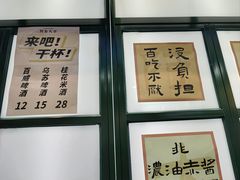 来吧!
干杯!
百威啤酒
12
乌苏啤酒
15
桂花米酒
28
没負担
百吃不厭
非
濃油赤醬